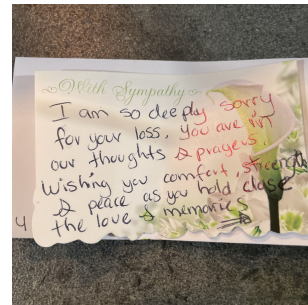 With Sympathy
I am so deeply sorry
for your loss. You are in
our thoughts & prayers.
Wishing you comfort, strength
& peace as you hold close
the love & memories